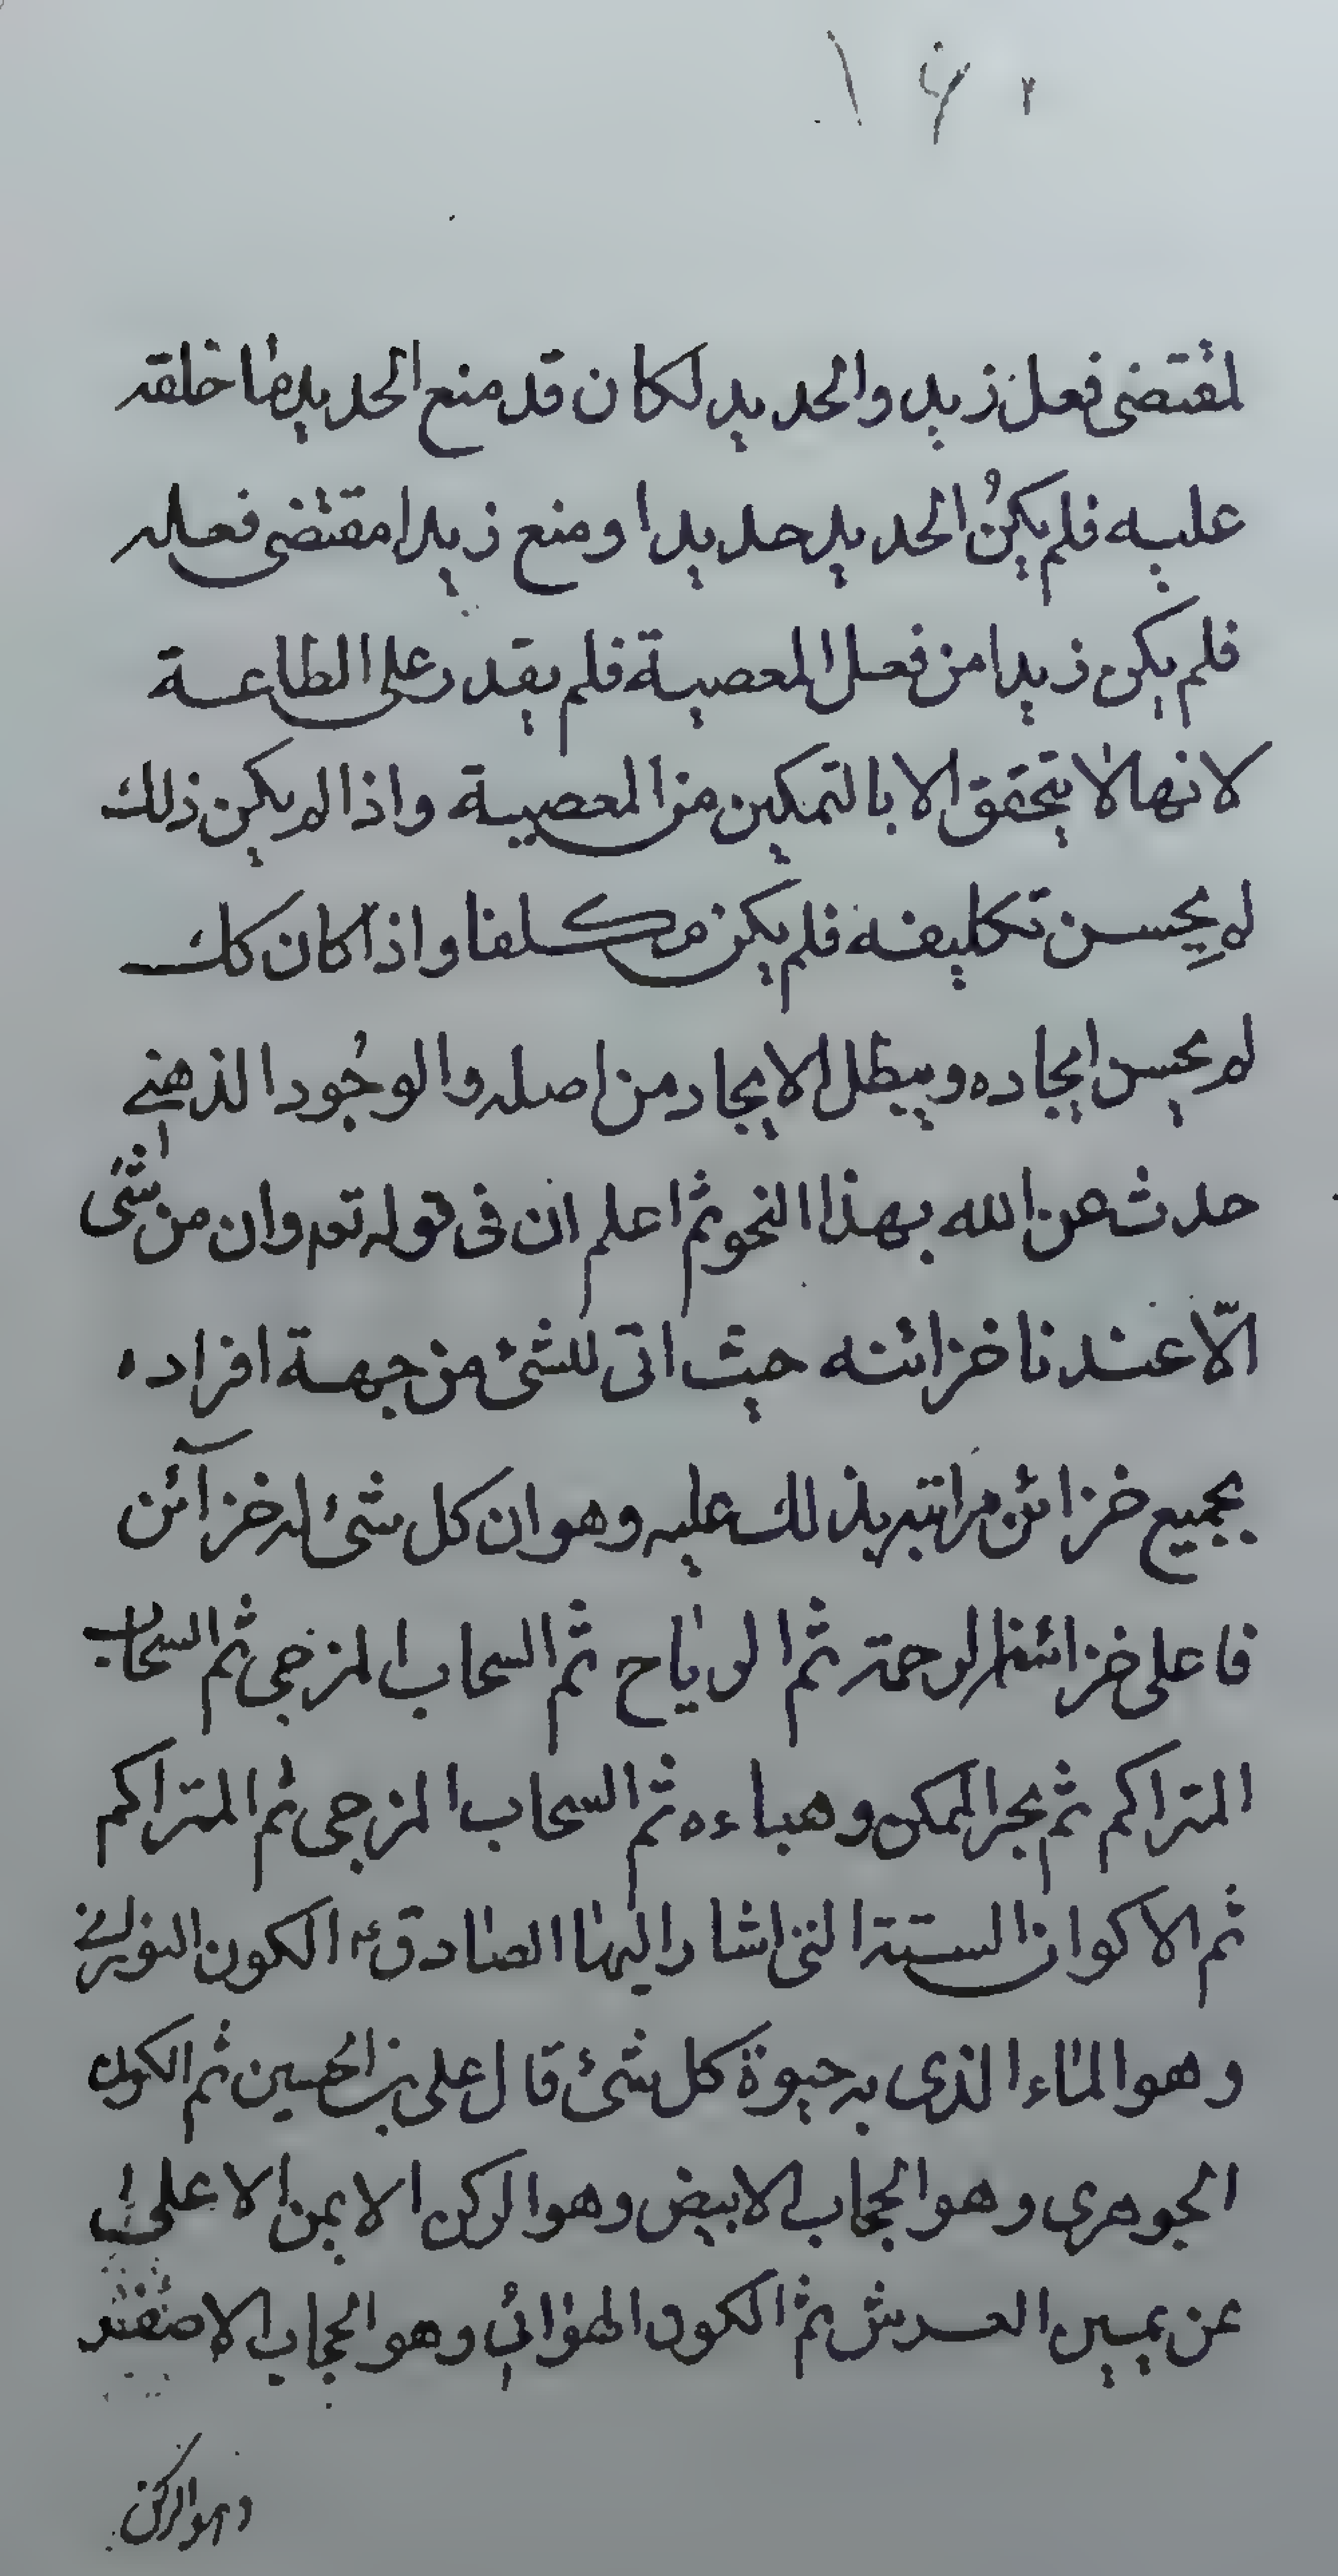 لمقتضى فعل زيد والحديد لكان قد منع الحديد ما خلقه
عليه فلم يكنُ الحديد حديدا ومنع زيدا مقتضى فعله
فلم يكن زيدا من فعل المعصية فلم يقدر على الطاعة
لانها لا يتحقق الا بالتمكين من المعصية واذا لم يكن ذلك
لم يحسن تكليفه فلم يكن مكلفا واذا كان كك
لم يحسن ايجاده ويبطل الايجاد من اصله والوجُود الذهني
حدث عن الله بهذا النحو ثم اعلم ان فى قوله تعه وان من شئ
الّا عندنا خزائنه حيث اتى للشئ من جهة افراده
بجميع خزائن مراتبه بذلك عليه وهو ان كل شئ له خزآئن
فاعلى خزائنه الرحمة ثم الرياح ثم السحاب المزجى ثم السحاب
المتراكم ثم بحر الممكن وهباءه ثم السحاب المزجى ثم المتراكم
ثم الاكوان الستة التى اشار اليها الصادق ع الكون النورانى
وهو الماء الذى به حيوة كل شئ قال على بن الحُسين ثم الكون
الجوهرى وهو الحجاب الابيض وهو الركن الايمن الاعلى
عن يمين العرش ثم الكون الهوائى وهو الحجاب الاصفر
وهو الركن